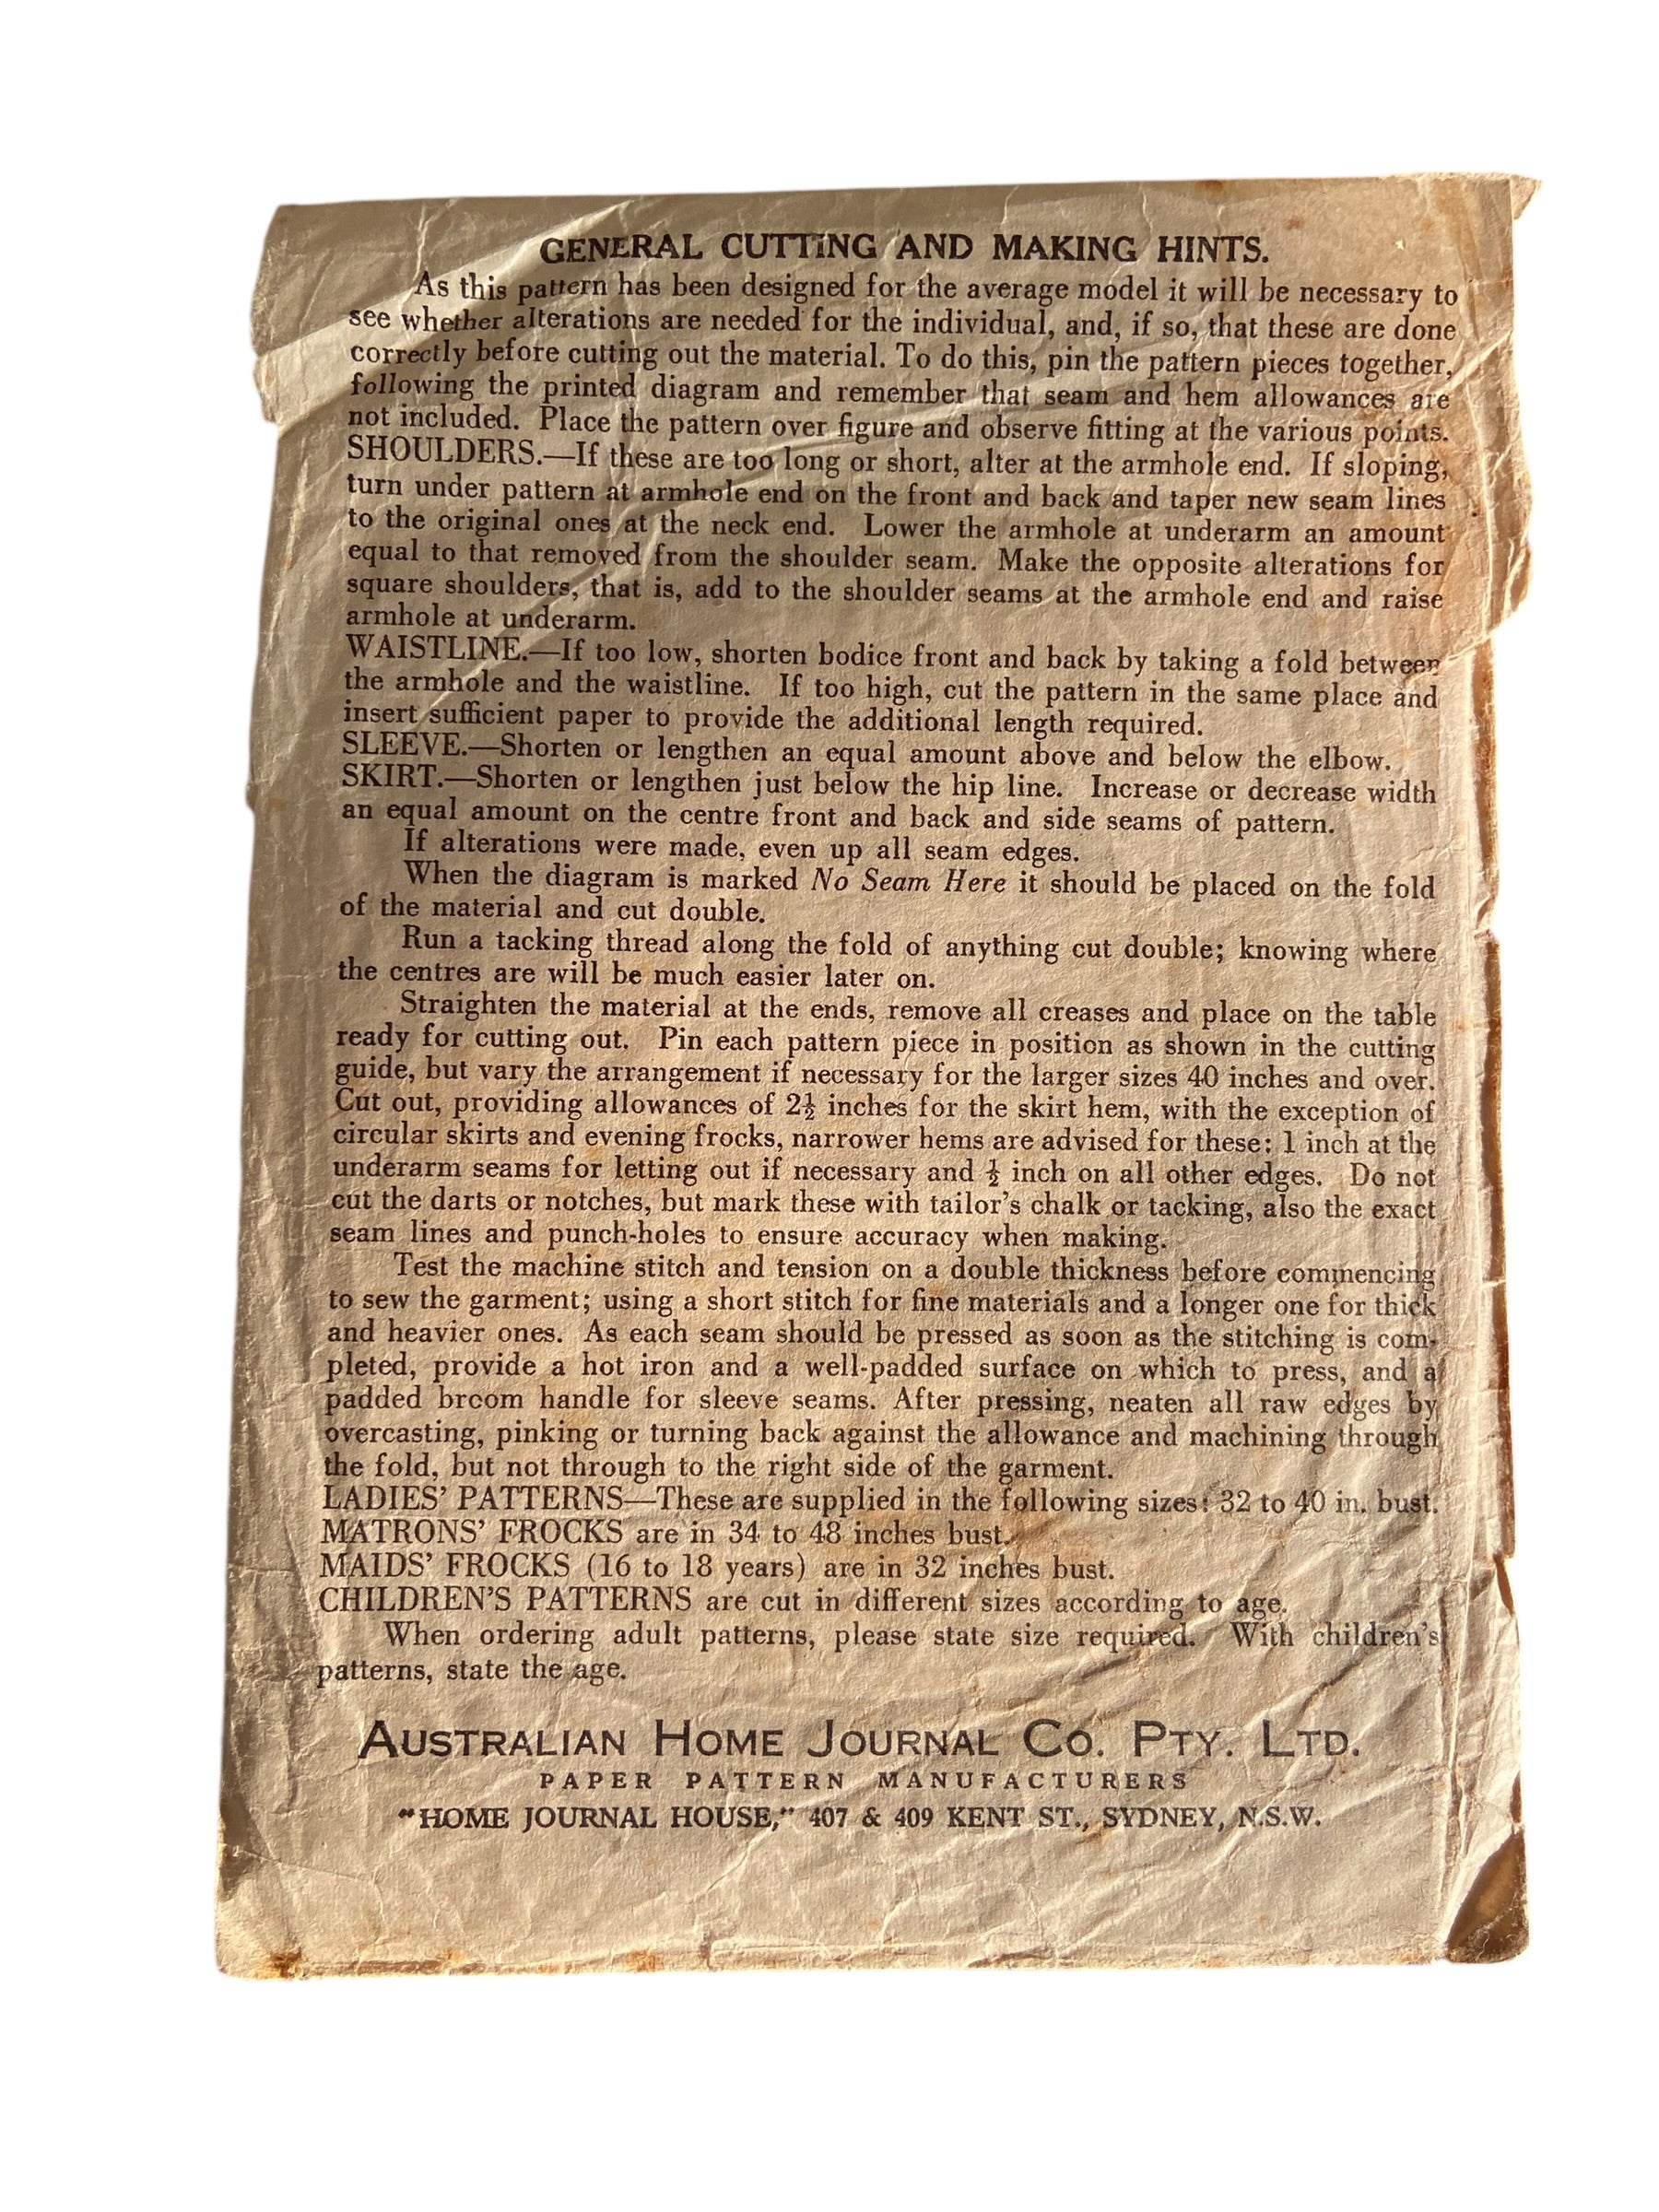 GENERAL CUTTING AND MAKING HINTS.
As this pattern has been designed for the average model it will be necessary to
see whether alterations are needed for the individual, and, if so, that these are done
correctly before cutting out the material. To do this, pin the pattern pieces together,
following the printed diagram and remember that seam and hem allowances are
not included. Place the pattern over figure and observe fitting at the various points.
SHOULDERS.—If these are too long or short, alter at the armhole end. If sloping,
turn under pattern at armhole end on the front and back and taper new seam lines
to the original ones at the neck end. Lower the armhole at underarm an amount
equal to that removed from the shoulder seam. Make the opposite alterations for
square shoulders, that is, add to the shoulder seams at the armhole end and raise
armhole at underarm.
WAISTLINE.—If too low, shorten bodice front and back by taking a fold between
the armhole and the waistline. If too high, cut the pattern in the same place and
insert sufficient paper to provide the additional length required.
SLEEVE.—Shorten or lengthen an equal amount above and below the elbow.
SKIRT.—Shorten or lengthen just below the hip line. Increase or decrease width
an equal amount on the centre front and back and side seams of pattern.
If alterations were made, even up all seam edges.
When the diagram is marked No Seam Here it should be placed on the fold
of the material and cut double.
Run a tacking thread along the fold of anything cut double; knowing where
the centres are will be much easier later on.
Straighten the material at the ends, remove all creases and place on the table
ready for cutting out. Pin each pattern piece in position as shown in the cutting
guide, but vary the arrangement if necessary for the larger sizes 40 inches and over.
Cut out, providing allowances of 2½ inches for the skirt hem, with the exception of
circular skirts and evening frocks, narrower hems are advised for these: 1 inch at the
underarm seams for letting out if necessary and ½ inch on all other edges. Do not
cut the darts or notches, but mark these with tailor's chalk or tacking, also the exact
seam lines and punch-holes to ensure accuracy when making.
Test the machine stitch and tension on a double thickness before commencing
to sew the garment; using a short stitch for fine materials and a longer one for thick
and heavier ones. As each seam should be pressed as soon as the stitching is com-
pleted, provide a hot iron and a well-padded surface on which to press, and a
padded broom handle for sleeve seams. After pressing, neaten all raw edges by
overcasting, pinking or turning back against the allowance and machining through
the fold, but not through to the right side of the garment.
LADIES' PATTERNS—These are supplied in the following sizes: 32 to 40 in. bust.
MATRONS' FROCKS are in 34 to 48 inches bust.
MAIDS' FROCKS (16 to 18 years) are in 32 inches bust.
CHILDREN'S PATTERNS are cut in different sizes according to age.
When ordering adult patterns, please state size required. With children's
patterns, state the age.
AUSTRALIAN HOME JOURNAL CO. PTY. LTD.
PAPER PATTERN MANUFACTURERS
"HOME JOURNAL HOUSE," 407 & 409 KENT ST., SYDNEY, N.S.W.